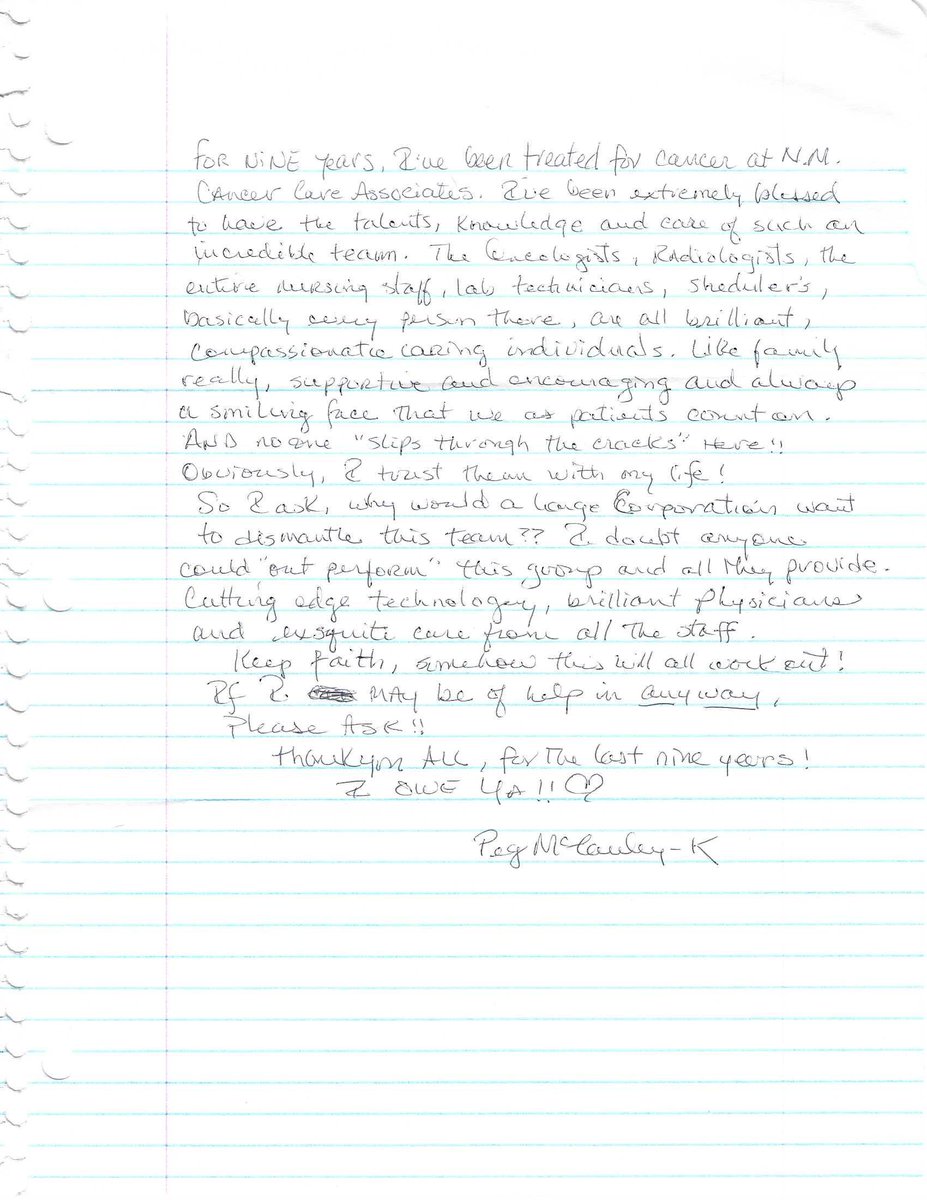 FOR NINE years, I've been treated for cancer at N.M.
CANCER Care Associates. I've been extremely blessed
to have the talents, knowledge and care of such an
incredible team. The Oncologists, RADiologists, the
entire nursing staff, lab technicians, sheduler's,
basically every person there, are all brilliant,
compassionate caring individuals. Like family
really, supportive and encouraging and always
a smiling face that we as patients count on.
AND no one "slips through the cracks" Here!!
Obviously, I trust them with my life!
So I ask, why would a large Corporation want
to dismantle this team?? I doubt anyone
could "out perform" this group and all they provide.
Cutting edge technology, brilliant physicians
and exsquite care from all the staff.
Keep faith, somehow this will all work out!
If I MAY be of help in anyway,
Please Ask!!
thankyou ALL, for the last nine years!
I OWE YA!! ♡
Peg McCauley-K